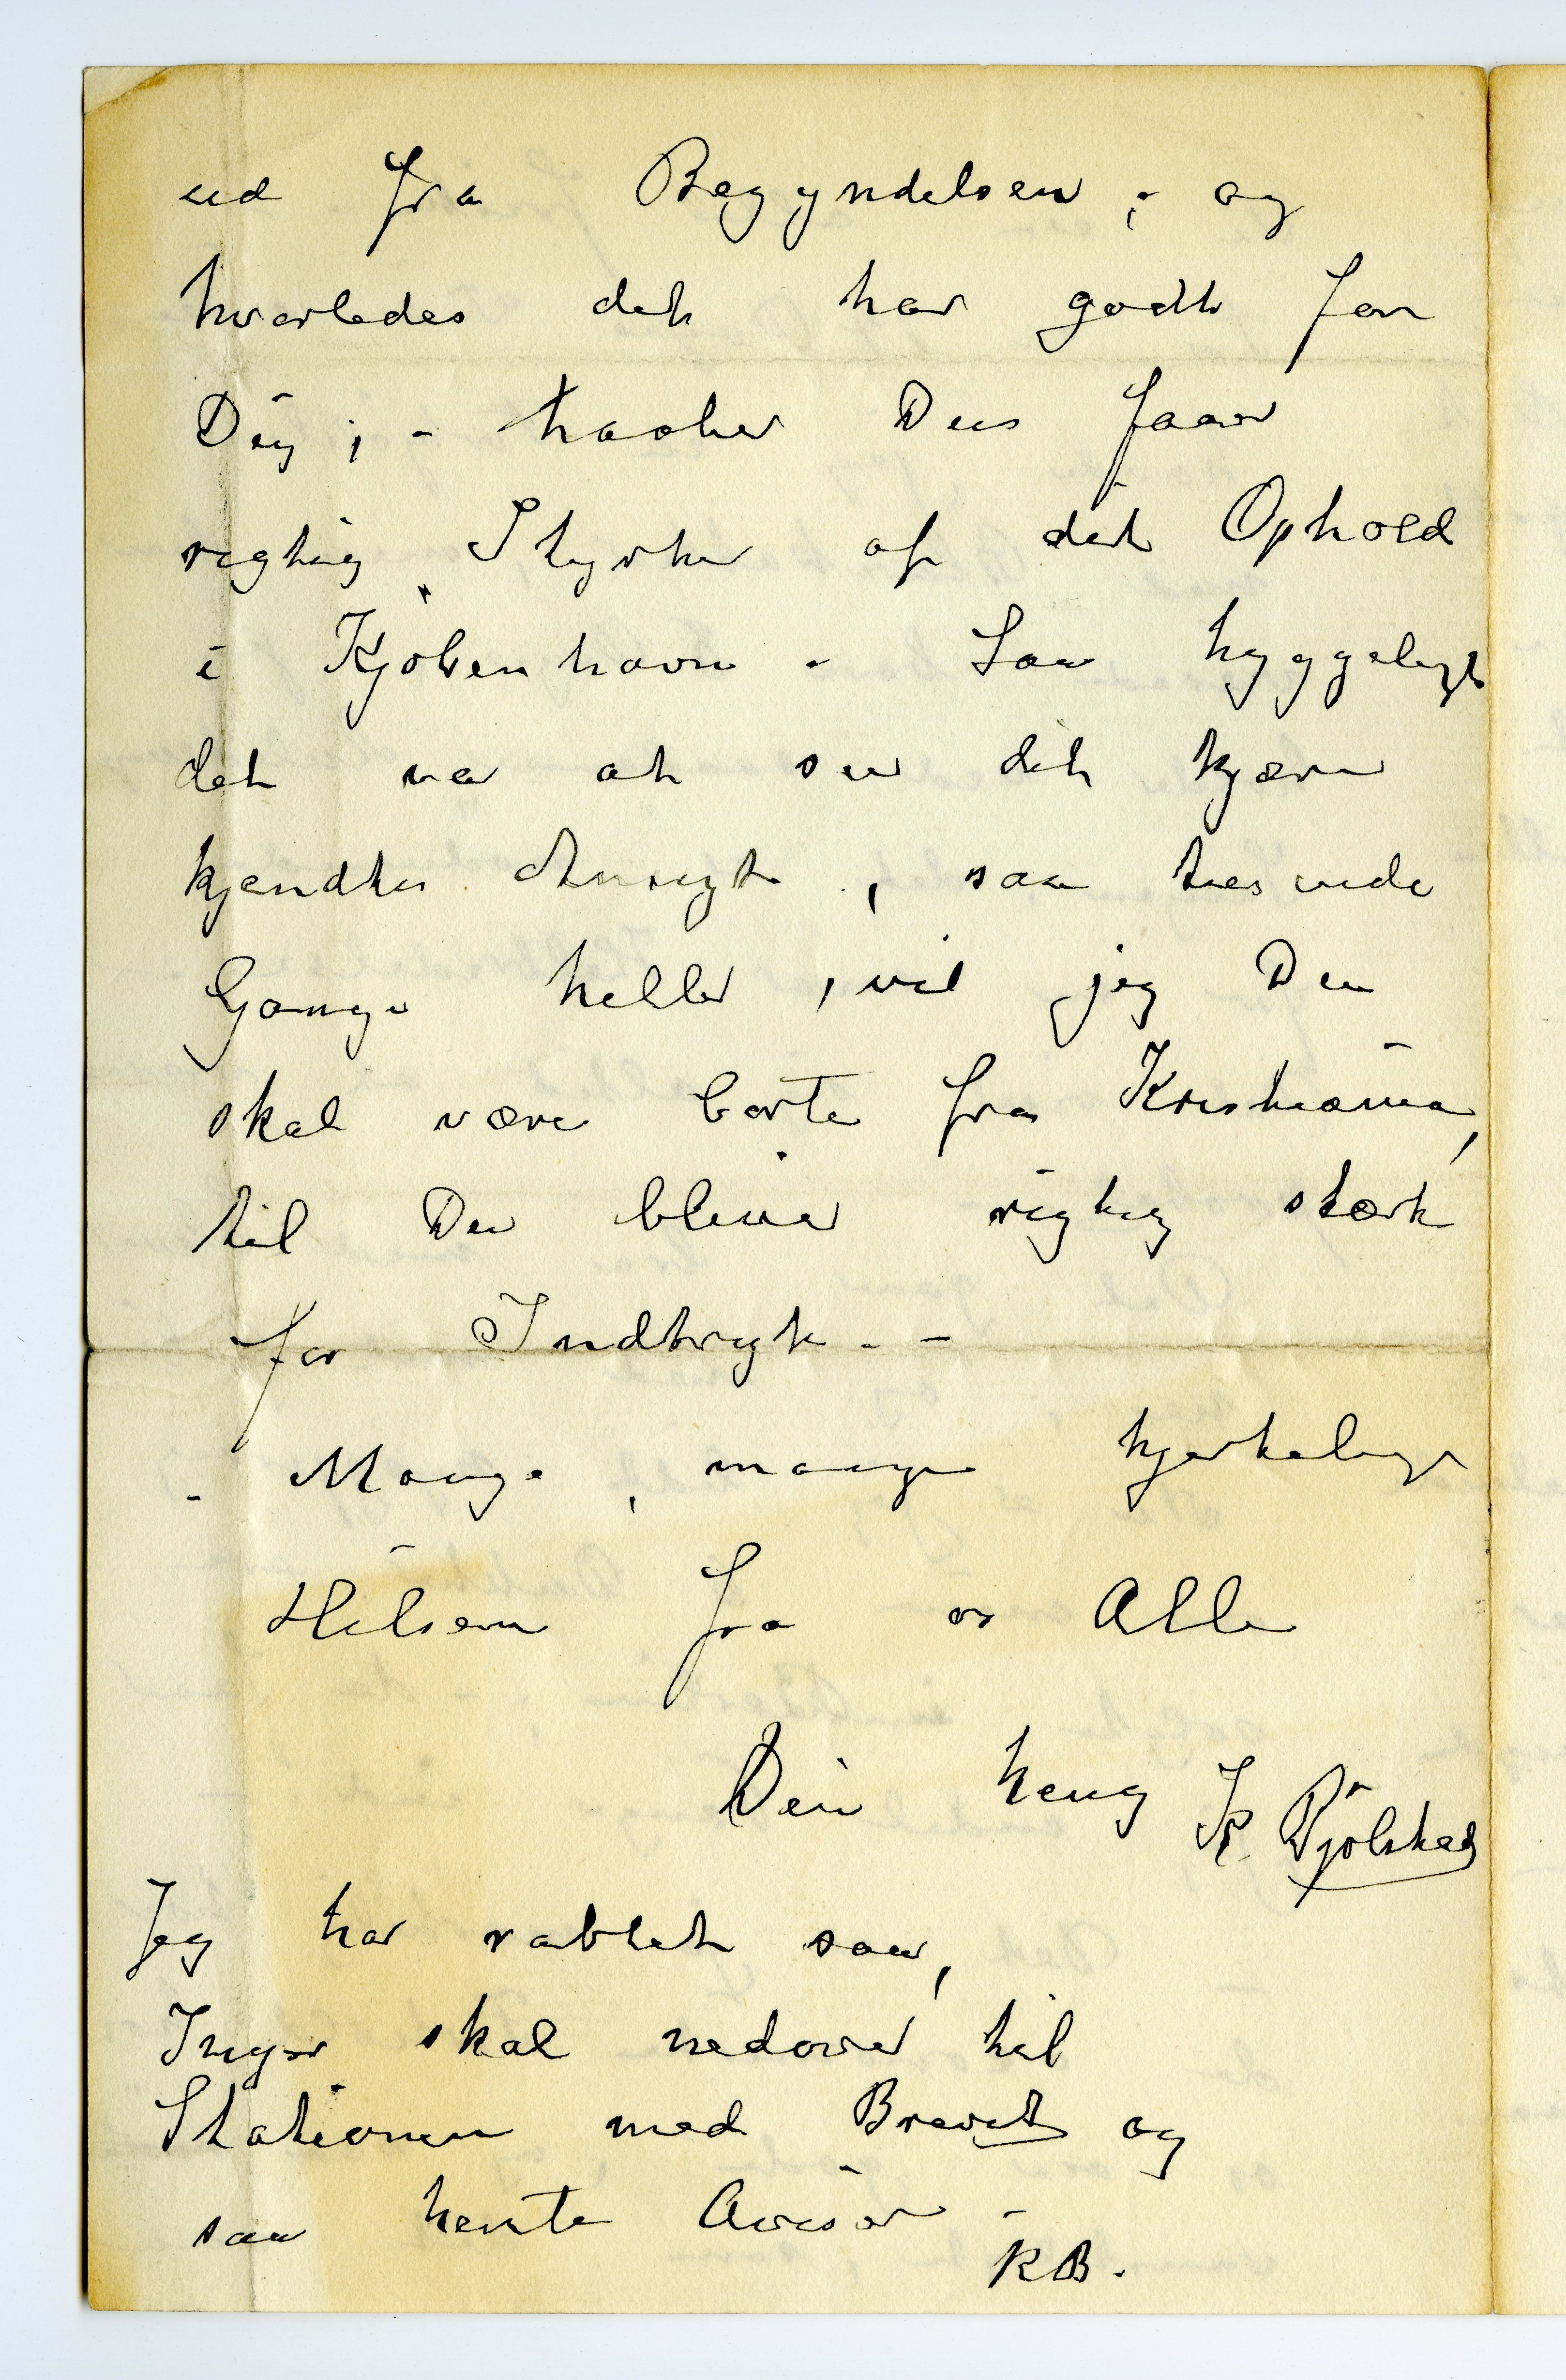 ud fra Begyndelsen, - og
hvorledes det har gådt for
Dig; - haaber Du faar
rigtig Styrke af dit Ophold
i Kjøbenhavn - Saa hyggeligt
det va at se dit kjære
kjendte Ansigt, saa tusinde
Gange heller, vil jeg Du
skal være borte fra Kristiania,
til Du bliver rigtig stærk
for Indtryk. -
- Mange, mange hjertelige
Hilsener fra os Alle
Din heng K Bjølstad
Jeg har rablet saa,
Inger skal nedover til
Stationen med Brevet og
saa hente Aviser -
KB.